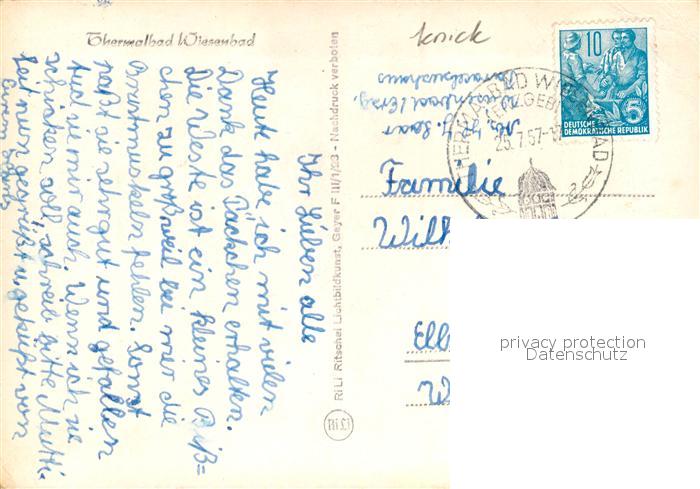 Thermalbad Wiesenbad
knick
Ihr Lieben alle
Heute habe ich mit vielen
Dank das Päckchen erhalten.
Die Weste ist ein kleines Biß=
chen zu groß weil bei mir die
Brustmuskeln fehlen. Sonst
paßt sie sehr gut und gefallen
tud sie mir auch. Wenn ich sie
schicken soll, schreib bitte Mutti.
Seit nun gegrüßt u. geküßt von
RiLi Ritschel Lichtbildkunst, Geyer F III/1/23 - Nachdruck verboten
RiLi
THERMALBAD WIESENBAD
(ERZGEB)
25.7.57
10
5
DEUTSCHE
DEMOKRATISCHE REPUBLIK
Familie
Wilh
Ell
W
privacy protection
Datenschutz